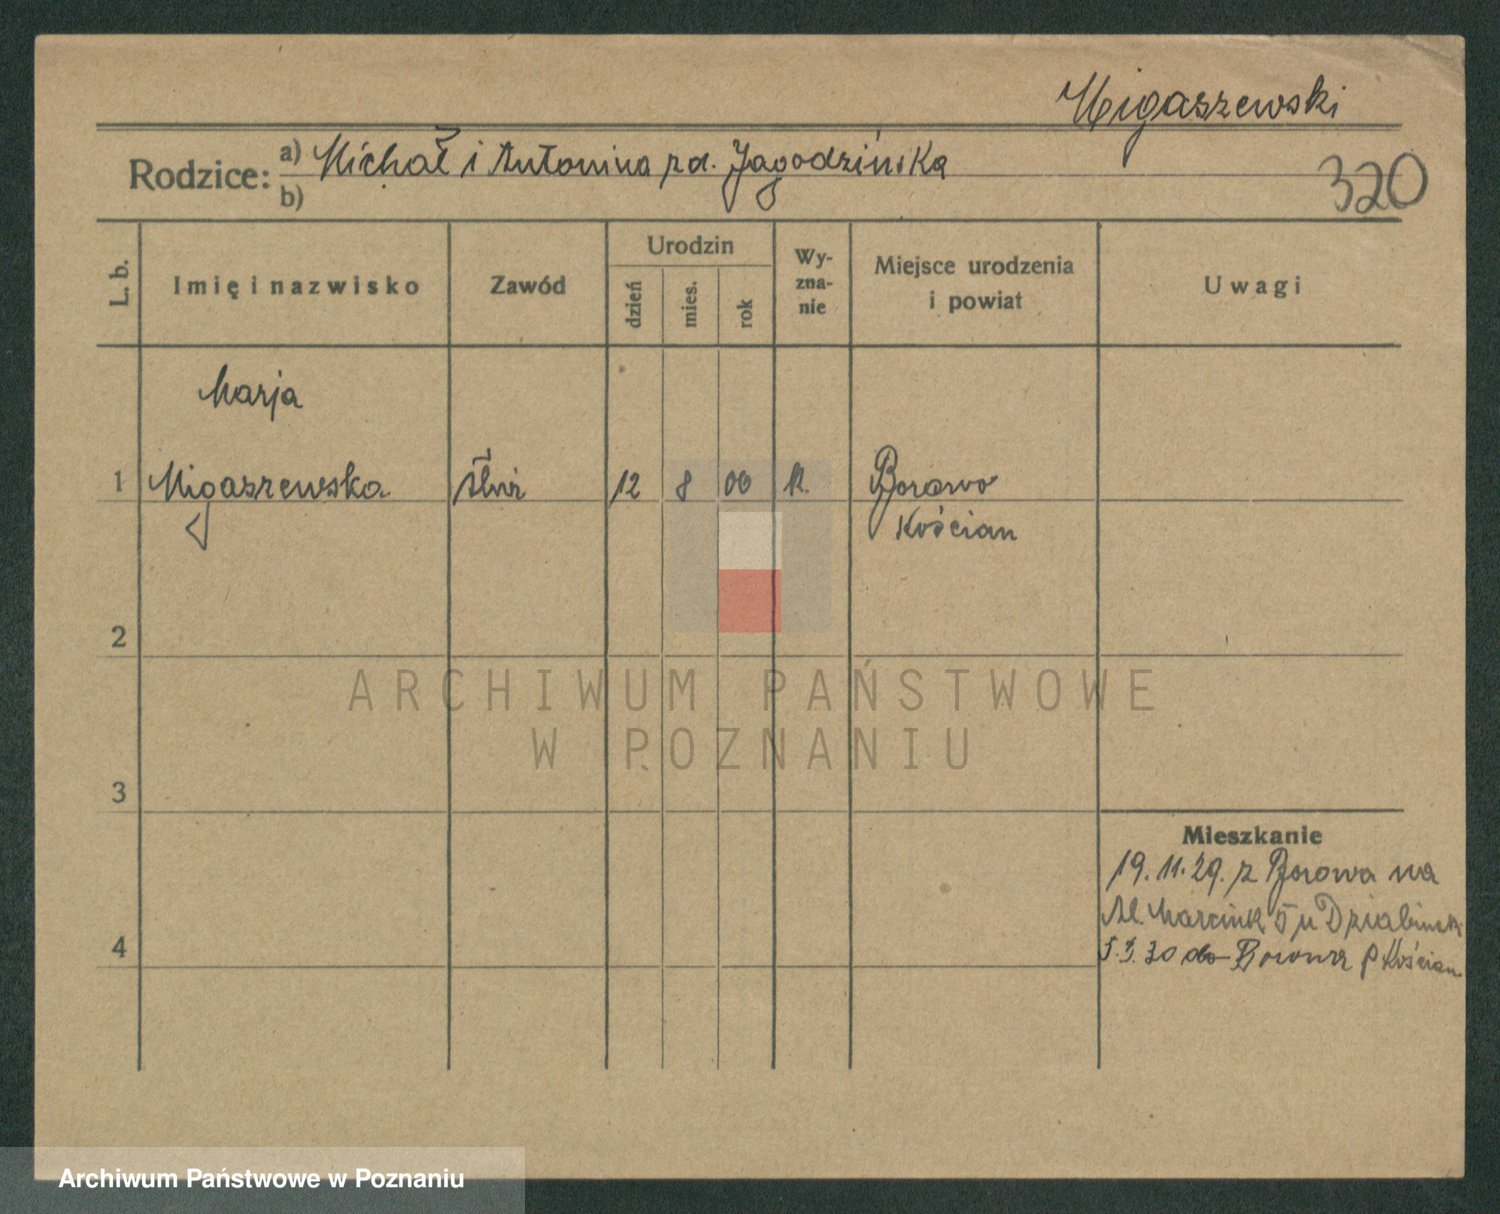 Migaszewski
Rodzice: a) Michał i Antonina rd. Jagodzińska
b)
320
L. b.
Imię i nazwisko
Zawód
Urodzin
dzień
mies.
rok
Wy-
zna-
nie
Miejsce urodzenia
i powiat
Uwagi
Marja
1 Migaszewska 12 8 00 k. Borowo
Kościan
2
ARCHIWUM PAŃSTWOWE
W POZNANIU
3
Mieszkanie
19.11.29. z Borowa na
Al. Marcink 5 u
4
do P Kościan
Archiwum Państwowe w Poznaniu